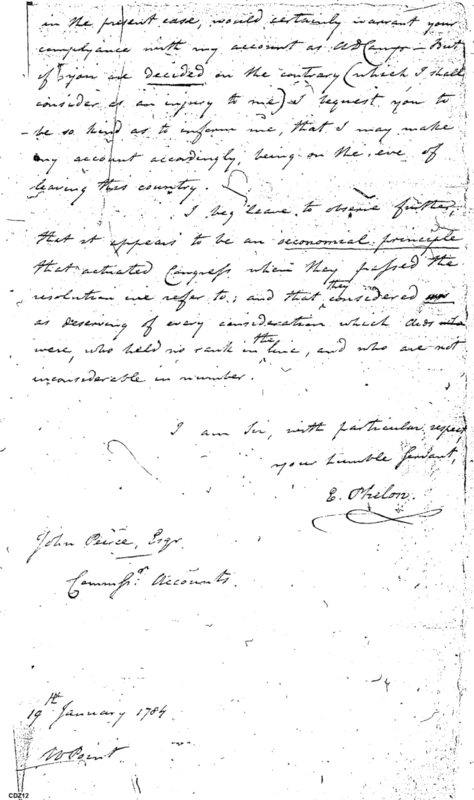 in the present case, would certainly warrant your
compliance with my account as ADCamp — But
if you are decided on the contrary (which I shall
consider as an injury to me) I request you to
be so kind as to inform me, that I may make
my account accordingly, being on the eve of
leaving this country.
I beg leave to observe further,
that it appears to be an œconomical principle
that actuated Congress when they passed the
resolution we refer to; and that they considered
as deserving of every consideration which aids
were, who held no rank in the line, and who are not
inconsiderable in number.
I am Sir, with particular respect,
your humble Servant,
E. Phelon.
John Peirce, Esqr.
Commissr. Accounts.
19th January 1784.
W Point.
CDZ12